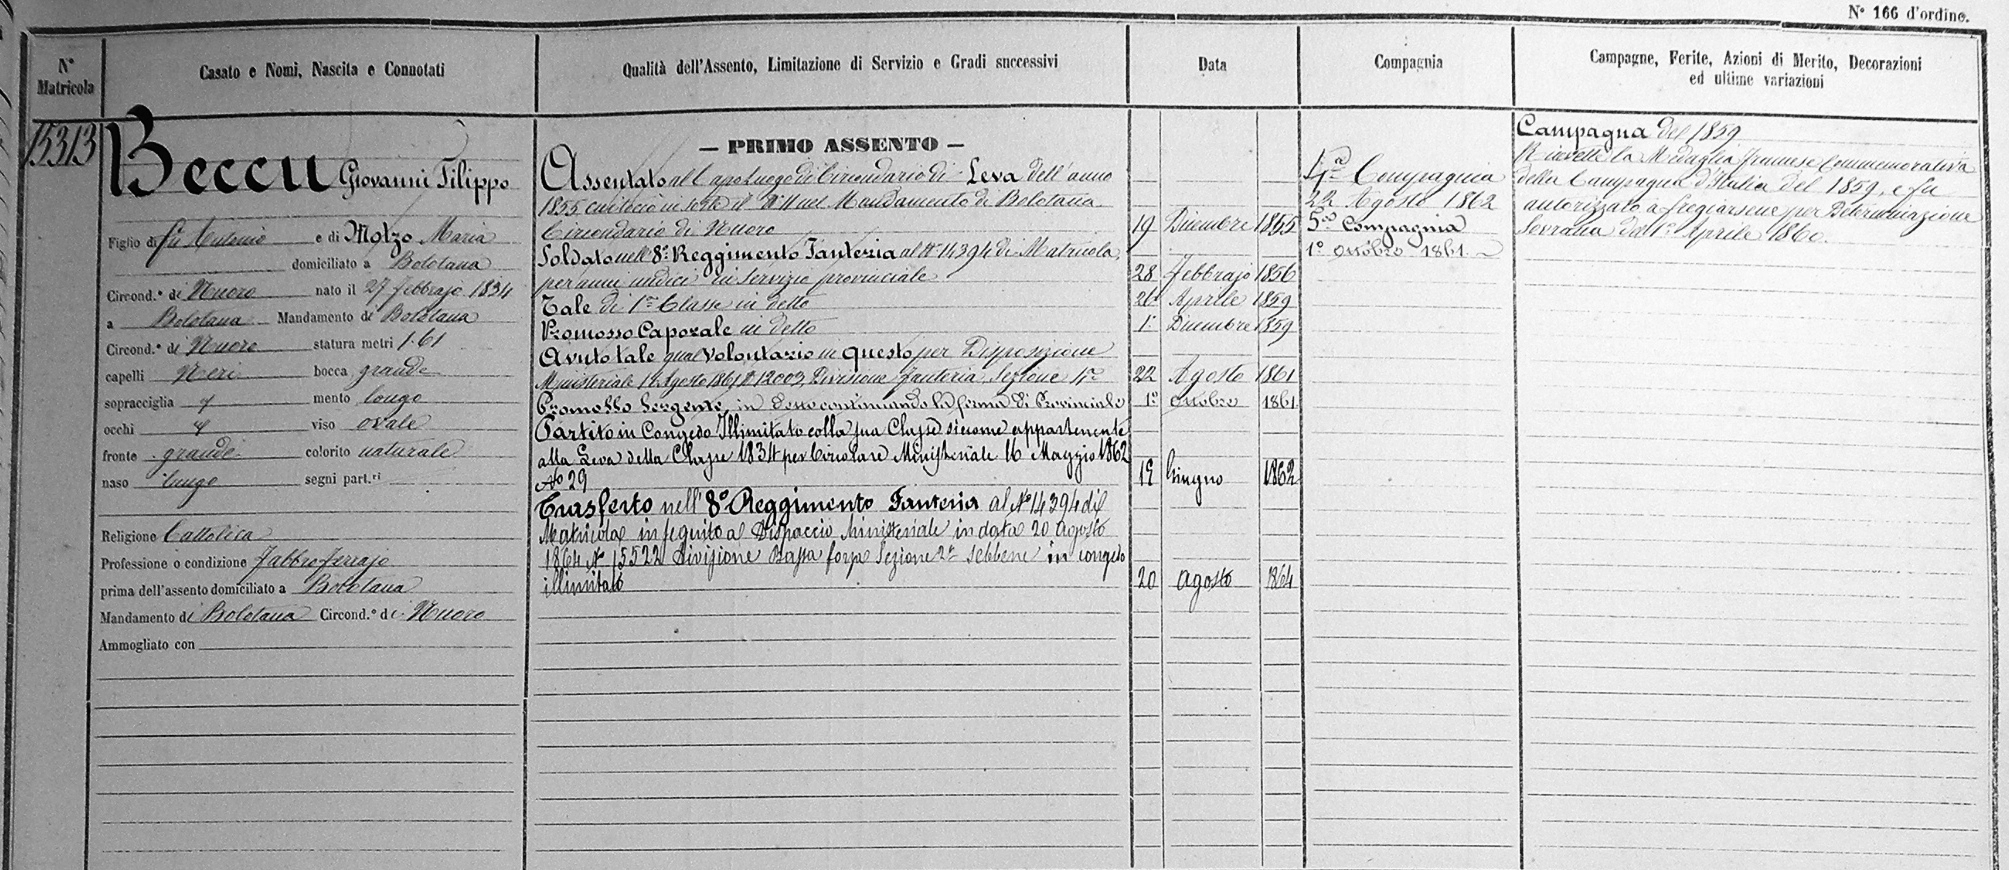 N° 166 d'ordine.
N° Matricola
Casato e Nomi, Nascita e Connotati
Qualità dell'Assento, Limitazione di Servizio e Gradi successivi
Data
Compagnia
Campagne, Ferite, Azioni di Merito, Decorazioni
ed ultime variazioni
15313
Beccu Giovanni Filippo
Figlio di fu Antonio e di Motzo Maria
domiciliato a Bolotana
Circond.° di Nuoro nato il 27 febbrajo 1834
a Bolotana Mandamento di Bolotana
Circond.° di Nuoro statura metri 1.61
capelli Neri bocca grande
sopracciglia mento longo
occhi viso ovale
fronte grande colorito naturale
naso lungo segni part.ri
Religione Cattolica
Professione o condizione Fabbro ferrajo
prima dell'assento domiciliato a Bolotana
Mandamento di Bolotana Circond.° di Nuoro
Ammogliato con
— PRIMO ASSENTO —
Assentato al Capoluogo di Circondario di Leva dell'anno
1855 in sorte il nel Mandamento di Bolotana
Circondario di Nuoro 19 Dicembre 1855
Soldato nell' 8° Reggimento Fanteria al N° 14394 di Matricola,
per anni undici in servizio provinciale 28 febbrajo 1856
Tale di 1ª Classe in detto 26 Aprile 1859
Promosso Caporale in detto 1° Dicembre 1859
Avuto tale qual volontario in questo per Disposizione
Ministeriale Agosto 1861 N° 12003, Divisione fanteria, Sezione 1ª 22 Agosto 1861
Promosso Sergente, in detto continuando la ferma di Provinciale 1° ottobre 1861
Partito in Congedo Illimitato colla sua Classe siccome appartenente
alla Leva della Classe 1834 per Circolare Ministeriale 16 Maggio 1862
N° 29 19 Giugno 1862
Trasferto nell' 8° Reggimento Fanteria al N° 14394 di
Matricola in seguito a Dispaccio Ministeriale in data 20 Agosto
1864 N° 15522 Divisione Bassa forza Sezione 2ª sebbene in congedo
illimitato 20 agosto 1864
Compagnia
22 Agosto 1862
5ª Compagnia
1° ottobre 1861
Campagna del 1859
Ricevette la Medaglia francese Commemorativa
della Campagna d'Italia del 1859, e fu
autorizzato a fregiarsene per Determinazione
Sovrana del 1° Aprile 1860.